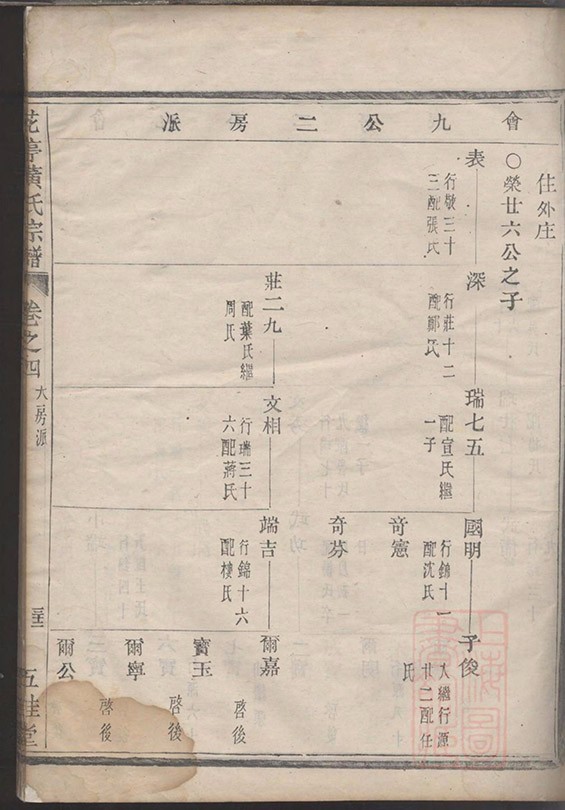 會九公二房派
住外庄
○榮廿六公之子
表
行敬三十
三配張氏
深
行莊十二
配鄘氏
瑞七五
配宣氏繼
一子
國明
行錦十一
配沈氏
子俊
入繼行源
廿二配任
氏
奇憲
奇芬
莊二九
配葉氏繼
周氏
文相
行瑞三十
六配蔣氏
端吉
行錦十六
配樓氏
爾嘉
啓後
寳玉
啓後
爾寧
啓後
爾公
花亭黃氏宗譜
卷之四
大房派
五桂堂